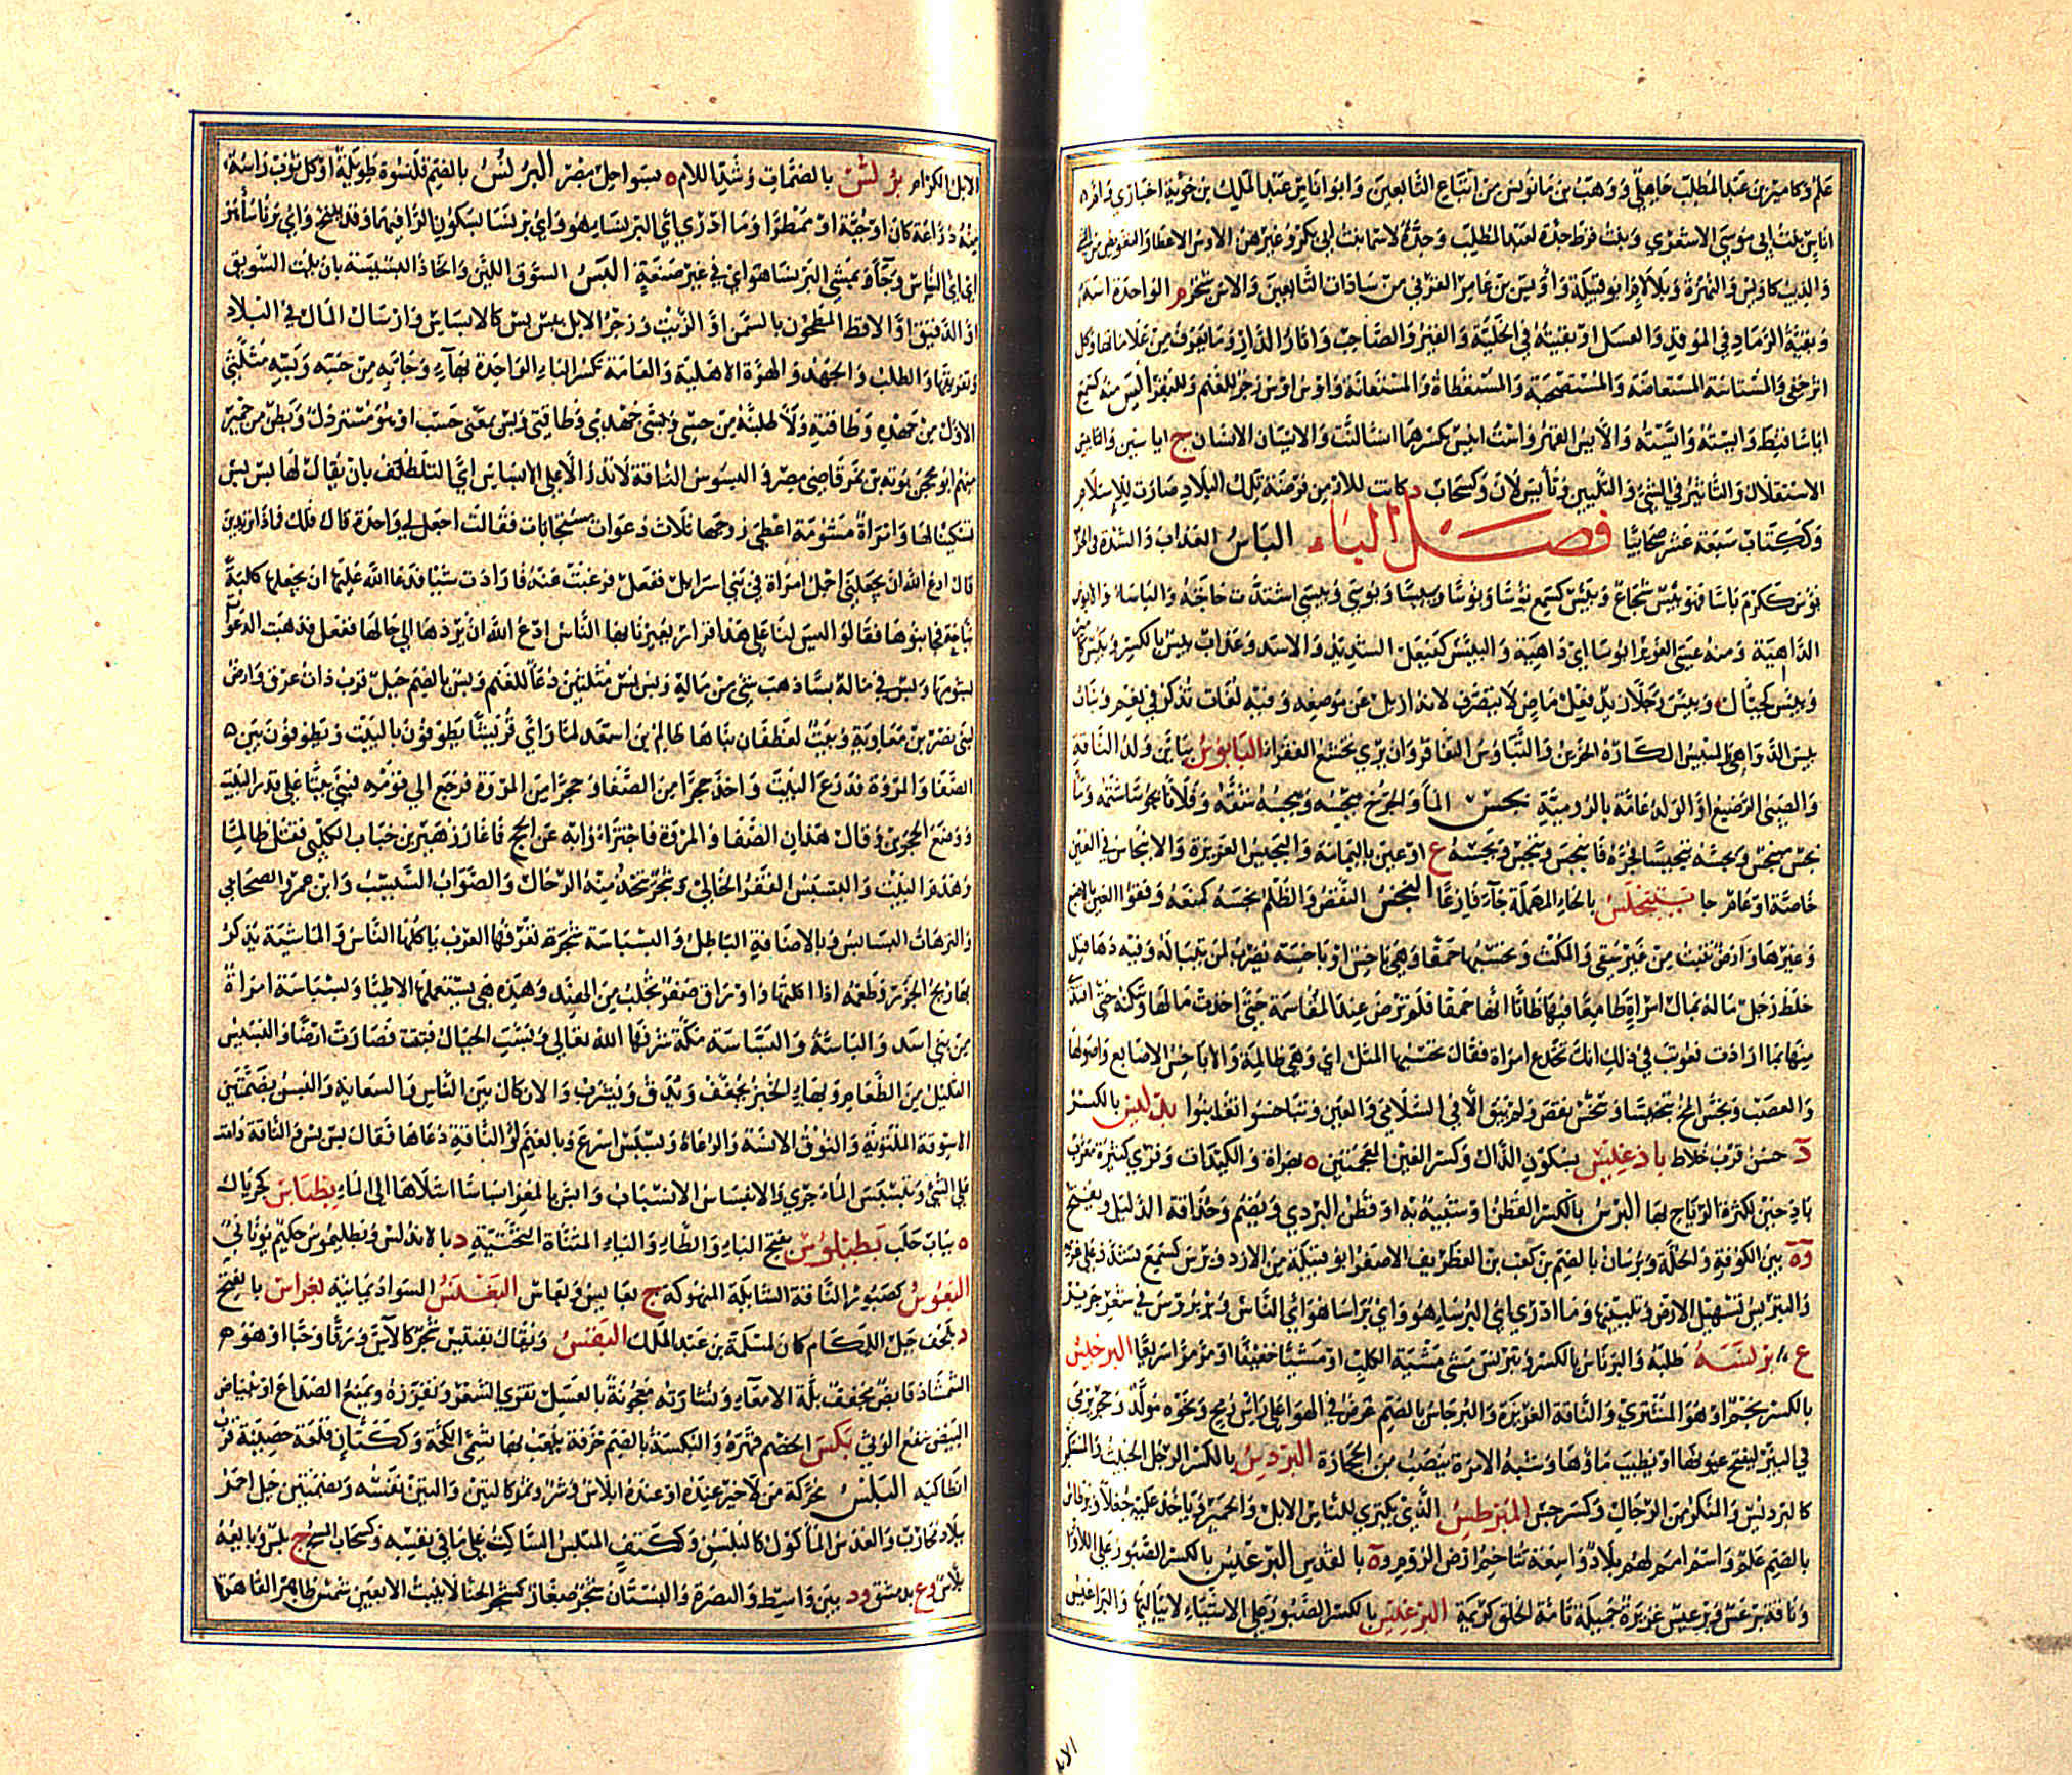 عَلَمٌ وَكَاَمِيْرٍ بن عَبْدِ المُطَّلِبِ جَاهِلِيٌّ وَوَهْبُ بن مَانُوسَ مِنْ اتْبَاعِ التَّابِعِينَ وَابُو انَاسٍ عَبْدُ المَلِكِ بن جُؤَيَّةَ اخْبَارِيٌّ وَامُّ
انَاسٍ بِنْتُ ابِي مُوسَى الاشْعَرِيِّ وَبِنْتُ قُرْطٍ جَدَّةٌ لِعَبْدِ المُطَّلِبِ وَجَدَّةٌ لاسْمَا بِنْتِ ابِي بَكْرٍ وَغَيْرُهُنَّ الاوْسُ الاعْطَا وَالتَّعْوِيضُ مِنَ الشَّيْ
وَالذِّيبُ كَاوَيْسٍ وَالنُّهْزَةُ وَبِلاَ لاَمٍ ابُو قَبِيلَةٍ وَاُوَيْسُ بن عَامِرٍ القَرَنِيُّ مِنْ سَادَاتِ التَّابِعِينَ وَالاسُ شَجَرٌ م الوَاحِدَةُ اسَةٌ
وَبَقِيَّةُ الرَّمَادِ فِي المَوْقِدِ وَالعَسَلُ اوْ بَقِيَّتُهُ فِي الخَلِيَّةِ وَالقَبْرُ وَالصَّاحِبُ وَاثَارُ الدَّارِ وَمَا يُعْرَفُ مِنْ عَلاَمَاتِهَا وَكُلُّ
اثَرٍ خَفِيٍّ وَالمُسْتَاسَةُ المُسْتَعَاضَةُ وَالمُسْتَصْحَبَةُ وَالمُسْتَعْطَاةُ وَالمُسْتَعَانَةُ وَاوْسْ اوْسْ زَجْرٌ لِلْغَنَمِ وَللْبَقَرِ ايِسَ مِنْهُ كَسَمِعَ
ايَاسًا قَنِطَ وَايَسْتُهُ وَايَّسْتُهُ وَالاَيْسُ القَهْرُ وَاسْتُ ايِسُ بِكَسْرِهِمَا اسْتَالَنْتُ وَالايْسَانُ الانْسَانُ ج ايَاسِينُ وَالتَّايِيسُ
الاسْتِقْلاَلُ وَالتَّاثِيرُ فِي الشَّيْ وَالتَّلْيِينُ وَتَأَيَّسَ لاَنَ وَكَسَحَابٍ د كَانَتْ لِلارْمَنِ فُرْضَةُ تِلْكَ البِلاَدِ صَارَتْ لِلإِسْلاَمِ
وَكَكِتَابٍ سَبْعَةَ عَشَرَ صَحَابِيًّا فصـل الباء البَاسُ العَذَابُ وَالشِّدَّةُ فِي الحَرْ
بَؤُسَ كَكَرُمَ بَاسًا فَهُوَ بَئِيسٌ شُجَاعٌ وَبَئِسَ كَسَمِعَ بُؤْسًا وَبُوسًا وَبَئِيسًا وَبُوسَى وَبِيسَى اشْتَدَّتْ حَاجَتُهُ وَالبَاسَا وَالابْوُسُ
الدَّاهِيَةُ وَمِنْهُ عَسَى الغُوَيْرُ ابْوُسًا ايْ دَاهِيَةً وَالبَيْئَسُ كَفَيْعَلٍ الشَّدِيدُ وَالاسَدُ وَعَذَابٌ بِئْسٌ بِالكَسْرِ وَبَئِيسٌ كَأَمِيْرٍ
وَبَيْئَسٌ كَجَيْأَلٍ وَبِيْسَ رَجُلاً زَيْدٌ فِعْلٌ مَاضٍ لاَ يَتَصَرَّفُ لانَّهُ ازِيلَ عَنْ مَوْضِعِهِ وَفِيهِ لُغَاتٌ تُذْكَرُ فِي نِعْمَ وَبَنَاتُ
بِيْسٍ الدَّوَاهِي المُبْتَئِسُ الكَارِهُ الحَزِينُ وَالتَّبَاوُسُ التَّفَاقُرُ وَانْ يُرِيَ تَخَشُّعَ الفُقَرَا البَابُوسُ بِبَايَيْنِ وَلَدُ النَّاقَةِ
وَالصَّبِيُّ الرَّضِيعُ اوِ الوَلَدُ عَامَّةً بِالرُّومِيَّةِ بَجَسَ المَا وَالجُرْحَ يَبْجِسُهُ وَيَبْجُسُهُ شَقَّهُ وَفُلاَنًا بُجُوسًا شَتَمَهُ وَمَا
بَجْسٌ مُنْبَجِسٌ وَبَجَّسَهُ تَبْجِيسًا فَجَّرَهُ فَانْبَجَسَ وَتَبَجَّسَ وَبَجْسَةُ ع اوْ عَيْنٌ بِاليَمَامَةِ وَالبَجِيسُ الغَزِيرَةُ وَالانْبِجَاسُ فِي العَيْنِ
خَاصَّةً اوْ عَامٌّ جا يَتَبَخْلَسُ بِالحَاءِ المُهْمَلَةِ جَآءَ فَارِغًا البَخْسُ النَّقْصُ وَالظُّلْمُ بَخَسَهُ كَمَنَعَهُ وَفَقْوُ العَيْنِ بِالاصْبَعِ
وَغَيْرِهَا وَارْضٌ تُنْبِتُ مِنْ غَيْرِ سَقْيٍ وَالمَكْسُ وَتَحْسَبُهَا حَمْقَا وَهِيَ بَاخِسٌ اوْ بَاخِسَةٌ يُضْرَبُ لِمَنْ يَتَبَالَهُ وَفِيهِ دَهَا قِيلَ
خَلَطَ رَجُلٌ مَالَهُ بِمَالِ امْرَاةٍ طَامِعًا فِيهَا ظَانًّا انَّهَا حَمْقَا فَلَمْ تَرْضَ عِنْدَ المُقَاسَمَةِ حَتَّى اخَذَتْ مَالَهَا وَشَكَتْهُ حَتَّى افْتَدَى
مِنْهَا بِمَا ارَادَتْ فَعُوتِبَ فِي ذَلِكَ انَّكَ تَخْدَعُ امْرَاةً فَقَالَ تَحْسَبُهَا المَثَلَ ايْ وَهِيَ ظَالِمَةٌ وَالابَاخِسُ الاصَابِعُ وَاصُولُهَا
وَالعَصَبُ وَبَخَّسَ المُخُّ تَبْخِيسًا وَتَبَخَّسَ نَقَصَ وَلَمْ يَبْقَ الاَّ فِي السُّلاَمَى وَالعَيْنِ وَتَبَاخَسُوا تَغَابَنُوا بِدْلِيسُ بِالكَسْرِ
د حَسَنٌ قُرْبَ خِلاَطَ بَاذَغِيسُ بِسُكُونِ الذَّالِ وَكَسْرِ الغَيْنِ المُعْجَمَتَيْنِ ة بِهَرَاةَ وَالكِيدَاتُ وَقُرًى كَثِيرَةٌ مُعَرَّبُ
بَادِخِيزْ لِكَثْرَةِ الرِّيَاحِ بِهَا البِرْسُ بِالكَسْرِ القُطْنُ اوْ شَبِيهٌ بِهِ اوْ قُطْنُ البَرْدِيِّ وَيُضَمُّ وَحَذَاقَةُ الدَّلِيلِ وَيُفْتَحُ
وَة بَيْنَ الكُوفَةِ وَالحِلَّةِ وَبُرْسَانُ بِالضَّمِّ بن كَعْبِ بن الغِطْرِيفِ الاصْغَرِ ابُو قَبِيلَةٍ مِنَ الازْدِ وَبَرِسَ كَسَمِعَ تَشَدَّدَ عَلَى غَرِيمِهِ
وَالتَّبْرِيسُ تَسْهِيلُ الارْضِ وَتَلْيِينُهَا وَمَا ادْرِي ايُّ البَرْسَاءِ هُوَ وَايُّ بَرَاسَا هُوَ ايُّ النَّاسِ وَبَرْبَرُوسُ فِي شِعْرِ جَرِيرٍ
ع بَرْبَسَهُ طَلَبَهُ وَالبِرْبَاسُ بِالكَسْرِ وَتَبَرْبَسَ مَشَى مِشْيَةَ الكَلْبِ اوْ مَشْيًا خَفِيفًا اوْ مَرَّ مَرًّا سَرِيعًا البِرْجِيسُ
بِالكَسْرِ نَجْمٌ اوْ هُوَ المُشْتَرِي وَالنَّاقَةُ الغَزِيرَةُ وَالبُرْجَاسُ بِالضَّمِّ غَرَضٌ فِي الهَوَا عَلَى رَاسِ رُمْحٍ وَنَحْوِهِ مُوَلَّدٌ وَحَجَرٌ يُرْمَى
فِي البِئْرِ لِيَفْتَحَ عُيُونَهَا اوْ يُطَيِّبَ مَاؤُهَا وَشِبْهُ الامَرَةِ يُنْصَبُ مِنَ الحِجَارَةِ البِرْدِيسُ بِالكَسْرِ الرَّجُلُ الخَبِيثُ وَالمُتَكَبِّرُ
كَالبِرْدِسِ وَالمُنْكَرُ مِنَ الرِّجَالِ وَكَسَرَ جَبَسَ المُبَرْطِسُ الَّذِي يَكْتَرِي لِلنَّاسِ الابِلَ وَالحَمِيرَ وَيَاخُذُ عَلَيْهِ جُعْلاً وَبُرْطَاسُ
بِالضَّمِّ عَلَمٌ وَاسْمُ امَمٍ لَهُمْ بِلاَدٌ وَاسِعَةٌ تُتَاخِمُ ارْضَ الرُّومِ وَة بِالقُدْسِ البِرْعِيسُ بِالكَسْرِ الصَّبُورُ عَلَى اللاْوَا
وَنَاقَةٌ بِرْعَسٌ وَبِرْعِيسٌ غَزِيرَةٌ جَمِيلَةٌ تَامَّةُ الخَلْقِ كَرِيمَةٌ البِرْغِيسُ بِالكَسْرِ الصَّبُورُ عَلَى الاشْيَاءِ لاَ يُبَالِيهَا وَالبَرَاغِيسُ
الابِلُ الكِرَامُ بُرُلُّسُ بِالضَّمَّاتِ وَشَدِّ اللامِ ة بِسَوَاحِلِ مِصْرَ البُرْنُسُ بِالضَّمِّ قَلَنْسُوَةٌ طَوِيلَةٌ اوْ كُلُّ ثَوْبٍ رَاسُهُ
مِنْهُ دُرَّاعَةً كَانَ اوْ جُبَّةً اوْ مِمْطَرًا وَمَا ادْرِي ايُّ البَرْنَسَاءِ هُوَ وَايُّ بَرْنَسَا بِسُكُونِ الرَّا فِيهِمَا وَقَدْ يُفْتَحُ وَايُّ بَرْنَاسَا هُوَ
ايْ ايُّ النَّاسِ وَجَآءَ يَمْشِي البَرْنَسَا هُوَ ايْ فِي غَيْرِ صَنْعَةٍ البَسُّ السَّوْقُ اللَّيِّنُ وَاتِّخَاذُ البَسِيسَةِ بِانْ يُلَتَّ السَّوِيقُ
اوِ الدَّقِيقُ اوِ الاقِطُ المَطْحُونُ بِالسَّمْنِ اوِ الزَّيْتِ وَزَجْرٌ لِلابِلِ بِسْ بِسْ كَالابْسَاسِ وَارْسَالُ المَالِ فِي البِلاَدِ
وَتَفْرِيقُهَا وَالطَّلَبُ وَالجَهْدُ وَالهِرَّةُ الاهْلِيَّةُ وَالعَامَّةُ تَكْسِرُ البَاءَ الوَاحِدَةُ بِهَآءٍ وَجَا بِهِ مِنْ حَسِّهِ وَبَسِّهِ مُثَلَّثَيِ
الاوَّلِ مِنْ جَهْدِهِ وَطَاقَتِهِ وَلاَطْلُبَنَّهُ مِنْ حَسِّي وَبَسِّي جَهْدِي وَطَاقَتِي وَبَسْ بِمَعْنَى حَسْبُ اوْ هُوَ مُسْتَرْذَلٌ وَبَطْنٌ مِنْ حِمْيَرَ
مِنْهُمْ ابُو مِحْجَنٍ تَوْبَةُ بن نَمِرٍ قَاضِي مِصْرَ وَالبَسُوسُ النَّاقَةُ لاَ تَدُرُّ الاَّ عَلَى الابْسَاسِ ايِ التَّلَطُّفِ بِانْ يُقَالَ لَهَا بُسْ بُسْ
تَسْكِينًا لَهَا وَامْرَاةٌ مَشْوُمَةٌ اعْطِيَ زَوْجُهَا ثَلاَثَ دَعَوَاتٍ مُسْتَجَابَاتٍ فَقَالَتِ اجْعَلْ لِي وَاحِدَةً قَالَ فَلَكِ فَمَاذَا تُرِيدِينَ
قَالَتِ ادْعُ اللهَ انْ يَجْعَلَنِي اجْمَلَ امْرَاةٍ فِي بَنِي اسْرَايِيلَ فَفَعَلَ فَرَغِبَتْ عَنْهُ فَارَادَتْ سَيِّئًا فَدَعَا اللهَ عَلَيْهَا انْ يَجْعَلَهَا كَلْبَةً
نَبَّاحَةً فَجَا بَنُوهَا فَقَالُوا لَيْسَ لَنَا عَلَى هَذَا قَرَارٌ يُعَيِّرُنَا بِهَا النَّاسُ ادْعُ اللهَ انْ يَرُدَّهَا الَى حَالِهَا فَفَعَلَ فَذَهَبَتِ الدَّعَوَاتُ
بِشُؤْمِهَا وَبُسَّ فِي مَالِهِ بَسًّا ذَهَبَ شَيْ مِنْ مَالِهِ وَبَسْ بَسْ مُثَلَّثَيْنِ دُعَآءٌ لِلْغَنَمِ وَبُسٌّ بِالضَّمِّ جَبَلٌ قُرْبَ ذَاتِ عِرْقٍ وَارْضٌ
لِبَنِي نَصْرِ بن مُعَاوِيَةَ وَبَيْتٌ لِغَطَفَانَ بَنَاهَا ظَالِمُ بن اسْعَدَ لَمَّا رَاى قُرَيْشًا يَطُوفُونَ بِالبَيْتِ وَيَطُوفُونَ بَيْنَ
الصَّفَا وَالمَرْوَةِ فَذَرَعَ البَيْتَ وَاخَذَ حَجَرًا مِنَ الصَّفَا وَحَجَرًا مِنَ المَرْوَةِ فَرَجَعَ الَى قَوْمِهِ فَبَنَى بَيْتًا عَلَى قَدْرِ البَيْتِ
وَوَضَعَ الحَجَرَيْنِ وَقَالَ هَذَانِ الصَّفَا وَالمَرْوَةُ فَاجْتَزَاوُا بِهِ عَنِ الحَجِّ فَاغَارَ زُهَيْرُ بن جَنَابٍ الكَلْبِيُّ فَقَتَلَ ظَالِمًا
وَهَدَمَ البَيْتَ وَالبَسْبَسُ القَفْرُ الخَالِي وَشَجَرٌ تُتَّخَذُ مِنْهُ الرِّحَالُ وَالصَّوَابُ السَّيْسَبُ وَابْنُ عَمْرٍو الصَّحَابِيُّ
وَالتُّرَّهَاتُ البَسَابِسُ وَبِالاضَافَةِ البَاطِلُ وَالبَسْبَاسَةُ شَجَرَةٌ تَعْرِفُهَا العَرَبُ يَاكُلُهَا النَّاسُ وَالمَاشِيَةُ تَذْكُرُ
بِهَا رِيحَ الجَزَرِ وَطَعْمَهُ اذَا اكَلْتَهَا وَاوْرَاقٌ صُفْرٌ تُجْلَبُ مِنَ الهِنْدِ وَهَذِهِ هِيَ يَسْتَعْمِلُهَا الاطِبَّا وَبَسْبَاسَةُ امْرَاةٌ
مِنْ بَنِي اسَدٍ وَالبَاسَّةُ وَالبَسَّاسَةُ مَكَّةُ شَرَّفَهَا اللهُ تَعَالَى وَبُسَّتِ الجِبَالُ فُتِّتَتْ فَصَارَتْ ارْضًا وَالبَسِيسُ
القَلِيلُ مِنَ الطَّعَامِ وَبِهَاءٍ الخُبْزُ يُجَفَّفُ وَيُدَقُّ وَيُشْرَبُ وَالايكَالُ بَيْنَ النَّاسِ بِالسِّعَايَةِ وَالبُسُسُ بِضَمَّتَيْنِ
الاسْوِقَةُ المَلْتُوتَةُ وَالنُّوقُ الانِسَةُ وَالرُّعَاةُ وَبَسْبَسَ اسْرَعَ وَبِالغَنَمِ اوِ النَّاقَةِ دَعَاهَا فَقَالَ بُسْ بُسْ وَالنَّاقَةُ دَامَتْ
عَلَى الشَّيْ وَتَبَسْبَسَ المَاءُ جَرَى وَالانْبِسَاسُ الانْسِيَابُ وَابَسَّ بِالمَعْزِ ابْسَاسًا اشْلاَهَا الَى المَاءِ بِطْيَاسُ كَجِرْيَالٍ
ة بِبَابِ حَلَبَ بَطَلْيَوْسُ بِفَتْحِ البَاءِ وَالطَّاءِ وَاليَاءِ المُثَنَّاةِ التَّحْتِيَّةِ د بِالانْدَلُسِ وَبَطْلِيمُوسُ حَكِيمٌ يُونَانِيٌّ
البَعُوسُ كَصَبُورٍ النَّاقَةُ الشَّايِلَةُ المَنْهُوكَةُ ج بَعَايِسُ وَبِعَاسٌ البَغْسُ السَّوَادُ يَمَانِيَةٌ بَغْرَاسُ بِالفَتْحِ
د بِلِحْفِ جَبَلِ اللُّكَامِ كَانَ لِمَسْلَمَةَ بن عَبْدِ المَلِكِ البَقْسُ وَيُقَالُ بَقْسِيسُ شَجَرٌ كَالآسِ وَرَقًا وَحَبًّا اوْ هُوَ م
الشِّمْشَاذُ قَابِضٌ يُجَفِّفُ بِلَّةَ الامْعَآءِ وَنُشَارَتُهُ مَعْجُونَةً بِالعَسَلِ تُقَوِّي الشَّعَرَ وَتُغَزِّرُهُ وَيَمْنَعُ الصُّدَاعَ اوْ بِبَيَاضِ
البَيْضِ يَنْفَعُ الوَثْيَ بَكَسَ الخَصْمَ قَهَرَهُ وَالبُكْسَةُ بِالضَّمِّ خِرْقَةٌ يُلْعَبُ بِهَا تُسَمَّى الكُجَّةَ وَكَكَتَّانٍ قَلْعَةٌ حَصِينَةٌ قُرْبَ
انْطَاكِيَةَ البَلَسُ مُحَرَّكَةً مَنْ لاَ خَيْرَ عِنْدَهُ اوْ عِنْدَهُ ابْلاَسٌ وَشَرٌّ وَثَمَرٌ كَالتِّينِ وَالتِّينُ نَفْسُهُ وَبِضَمَّتَيْنِ جَبَلٌ احْمَرُ
بِبِلاَدِ مُحَارِبٍ وَالعَدَسُ المَأْكُولُ كَالبُلْسُنِ وَكَكَتِفٍ المُبْلِسُ السَّاكِتُ عَلَى مَا فِي نَفْسِهِ وَكَسَحَابٍ المِسْحُ ج بُلُسٌ وَبَايِعُهُ
بَلاَّسٌ وَع بِدِمَشْقَ وَد بَيْنَ وَاسِطَ وَالبَصْرَةِ وَالبَلَسَانُ شَجَرٌ صِغَارٌ كَشَجَرِ الحِنَّا لاَ يَنْبُتُ الاَّ بِعَيْنِ شَمْسٍ ظَاهِرَ القَاهِرَةِ